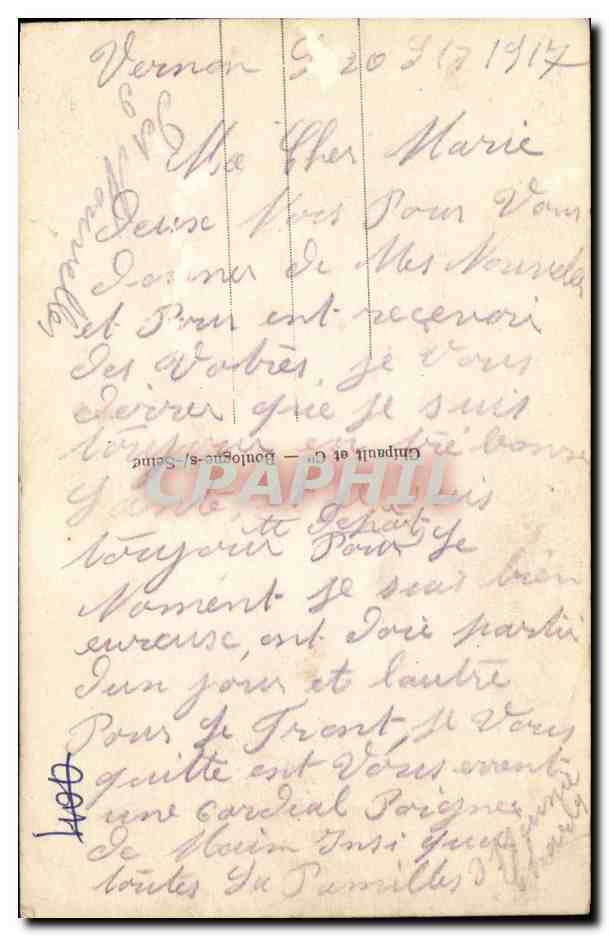 Vernon 20 9 17 1917
Ma Cher Marie
deux Mots Pour Vous
donner de Mes Nouvelles
et Pour ent recevoir
des Votres, je Vous
direz que je suis
toujour en tré bonne
Santé
au Depôt
toujour Pour Le
Moment je suis bien
eureuse, ont doie partir
dun jour et lautre
Pour Le Front, je Vous
quitte ent Vous
une cordial Poignee
de Main Insi que
toutes La Familles
Nouvelles
Chipault et Cie — Boulogne-s/-Seine
CPAPHIL